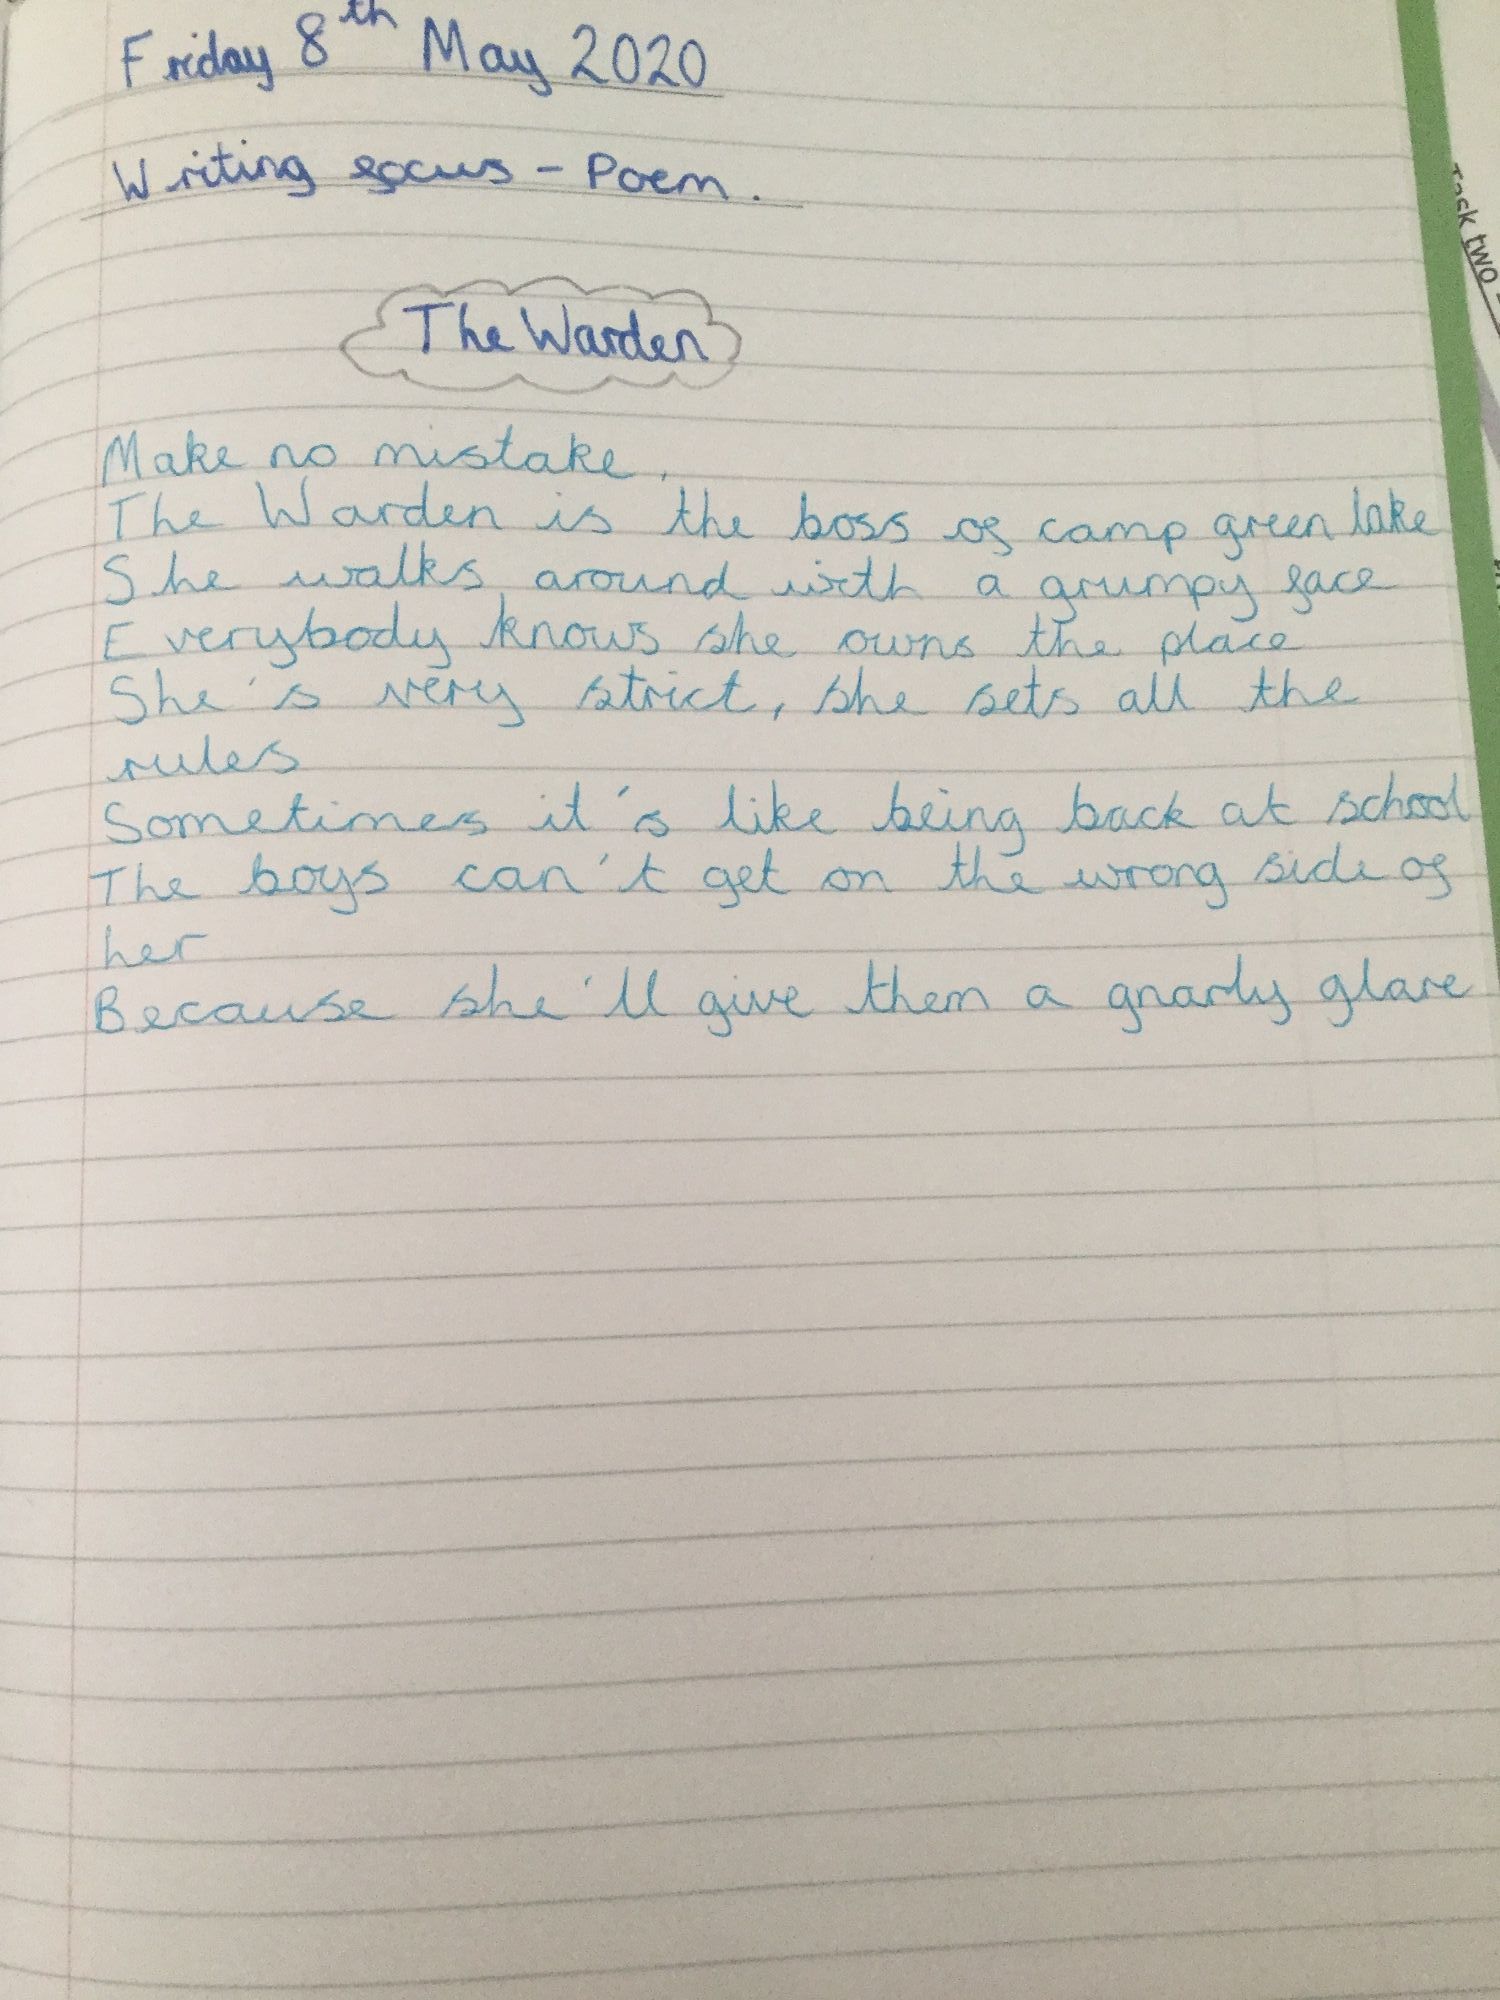 Friday 8th May 2020
Writing focus - Poem.
The Warden
Make no mistake,
The Warden is the boss of camp green lake
She walks around with a grumpy face
Everybody knows she owns the place
She's very strict, she sets all the
rules
Sometimes it's like being back at school
The boys can't get on the wrong side of
her
Because she'll give them a gnarly glare
Task two